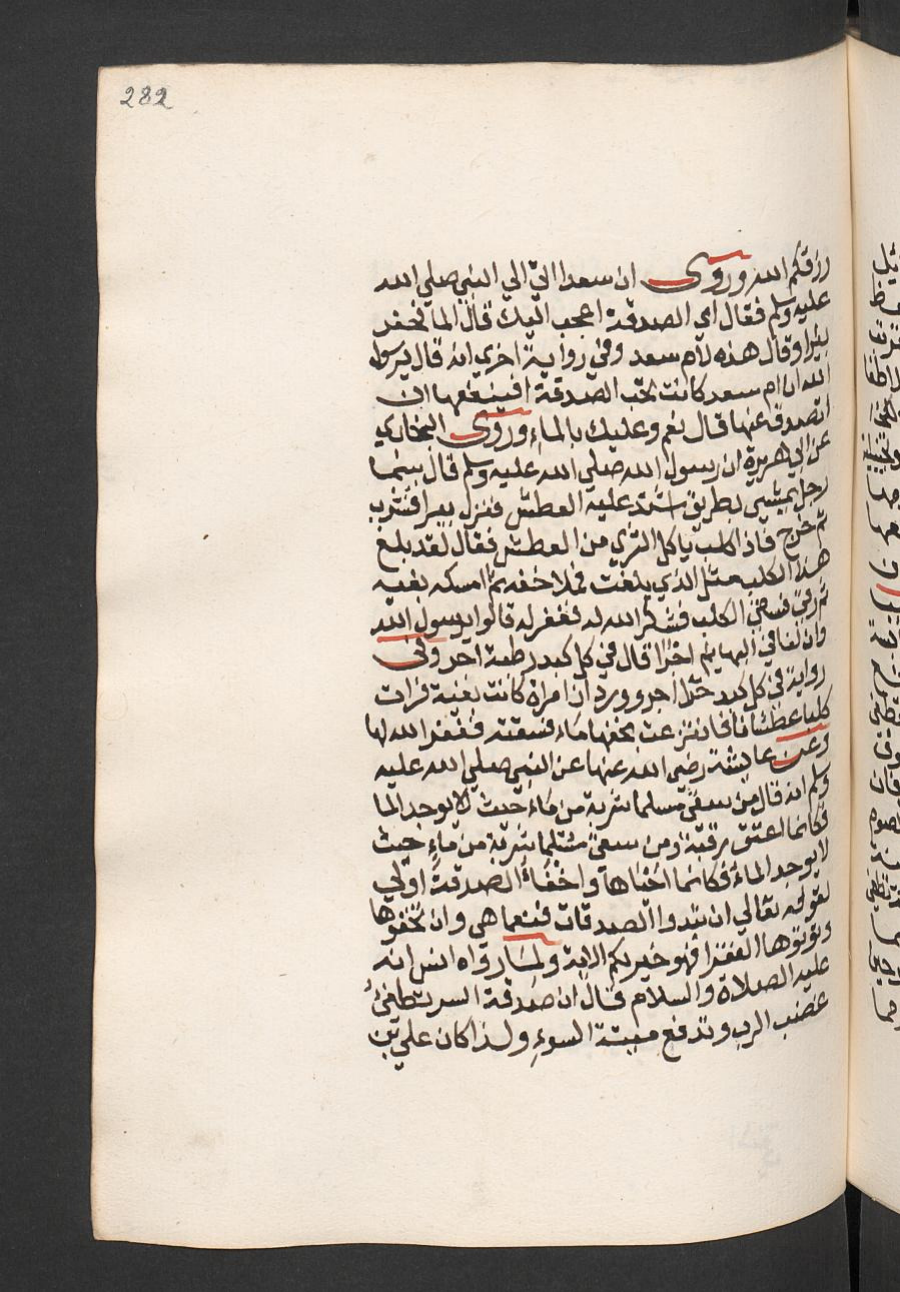 282
رزقكم الله وروى ان سعدا اتى الي النبي صلي الله
عليه وسلم فقال اي الصدقة اعجب اليك قال الما فحفر
بئرا وقال هذه لام سعد وفي رواية اخري انه قال يرسول
الله ان ام سعد كانت تحب الصدقة افينفعها ان
اتصدق عنها قال نعم وعليك بالماء وروى البخاري
عن ابي هريرة ان رسول الله صلي الله عليه وسلم قال بينما
رجل يمشي بطريق اشتد عليه العطش فنزل بيرا فشرب
ثم خرج فاذا كلب ياكل الثري من العطش فقال لقد بلغ
هذا الكلب مثل الذي بلغت فملا خفه ثم امسكه بفيه
ثم رقي فسقى الكلب فشكر الله له فغفر له قالوا يرسول الله
وان لنا في البهايم اجرا قال في كل كبد رطبة اجر وفى
رواية في كل كبد حرا اجر وورد ان امراة كانت بغية فرات
كلبا عطشانا فانتزعت بخفها ماء فسقته فغفر الله لها
وعن عايشة رضي الله عنها عن النبي صلي الله عليه
وسلم انه قال من سقى مسلما شربة من ماء حيث لا يوجد الما
فكانما اعتق رقبة ومن سقى مسلما شربة من ماء حيث
لا يوجد الماء فكانما احياها واخفاء الصدقة اولي
لقوله تعالي ان تبدوا الصدقات فنعما هي وان تخفوها
وتؤتوها الفقرا فهو خير لكم الاية ولما رواه انس انه
عليه الصلاة والسلام قال ان صدقة السر تطفئ
غضب الرب وتدفع ميتة السوء ولذا كان علي بن